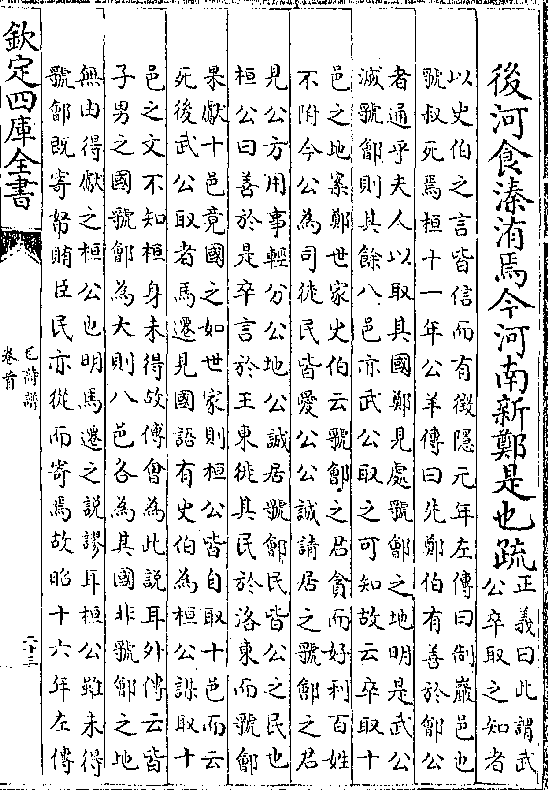 後河食溱洧焉今河南新鄭是也疏
正義曰此謂武
公卒取之知者
以史伯之言皆信而有徵隱元年左傳曰制巖邑也
虢叔死焉桓十一年公羊傳曰先鄭伯有善於鄶公
者通乎夫人以取其國鄭見處虢鄶之地明是武公
滅虢鄶則其餘八邑亦武公取之可知故云卒取十
邑之地案鄭世家史伯云虢鄶之君貪而好利百姓
不附今公為司徒民皆愛公公誠請居之虢鄶之君
見公方用事輕分公地公誠居虢鄶民皆公之民也
桓公曰善於是卒言於王東徙其民於洛東而虢鄶
果獻十邑竟國之如世家則桓公皆自取十邑而云
死後武公取者馬遷見國語有史伯為桓公謀取十
邑之文不知桓身未得故傅會為此說耳外傳云皆
子男之國虢鄶為大則八邑各為其國非虢鄶之地
無由得獻之桓公也明馬遷之說謬耳桓公雖未得
虢鄶既寄帑賄臣民亦從而寄焉故昭十六年左傳
欽定四庫全書
毛詩譜
卷首
二十三